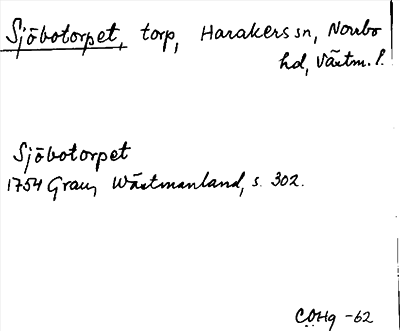 Sjöbotorpet, torp, Harakers sn, Norrbo
hd, Västm. l.
Sjöbotorpet
1754 Grau, Wästmanland, s. 302.
CÖHg -62